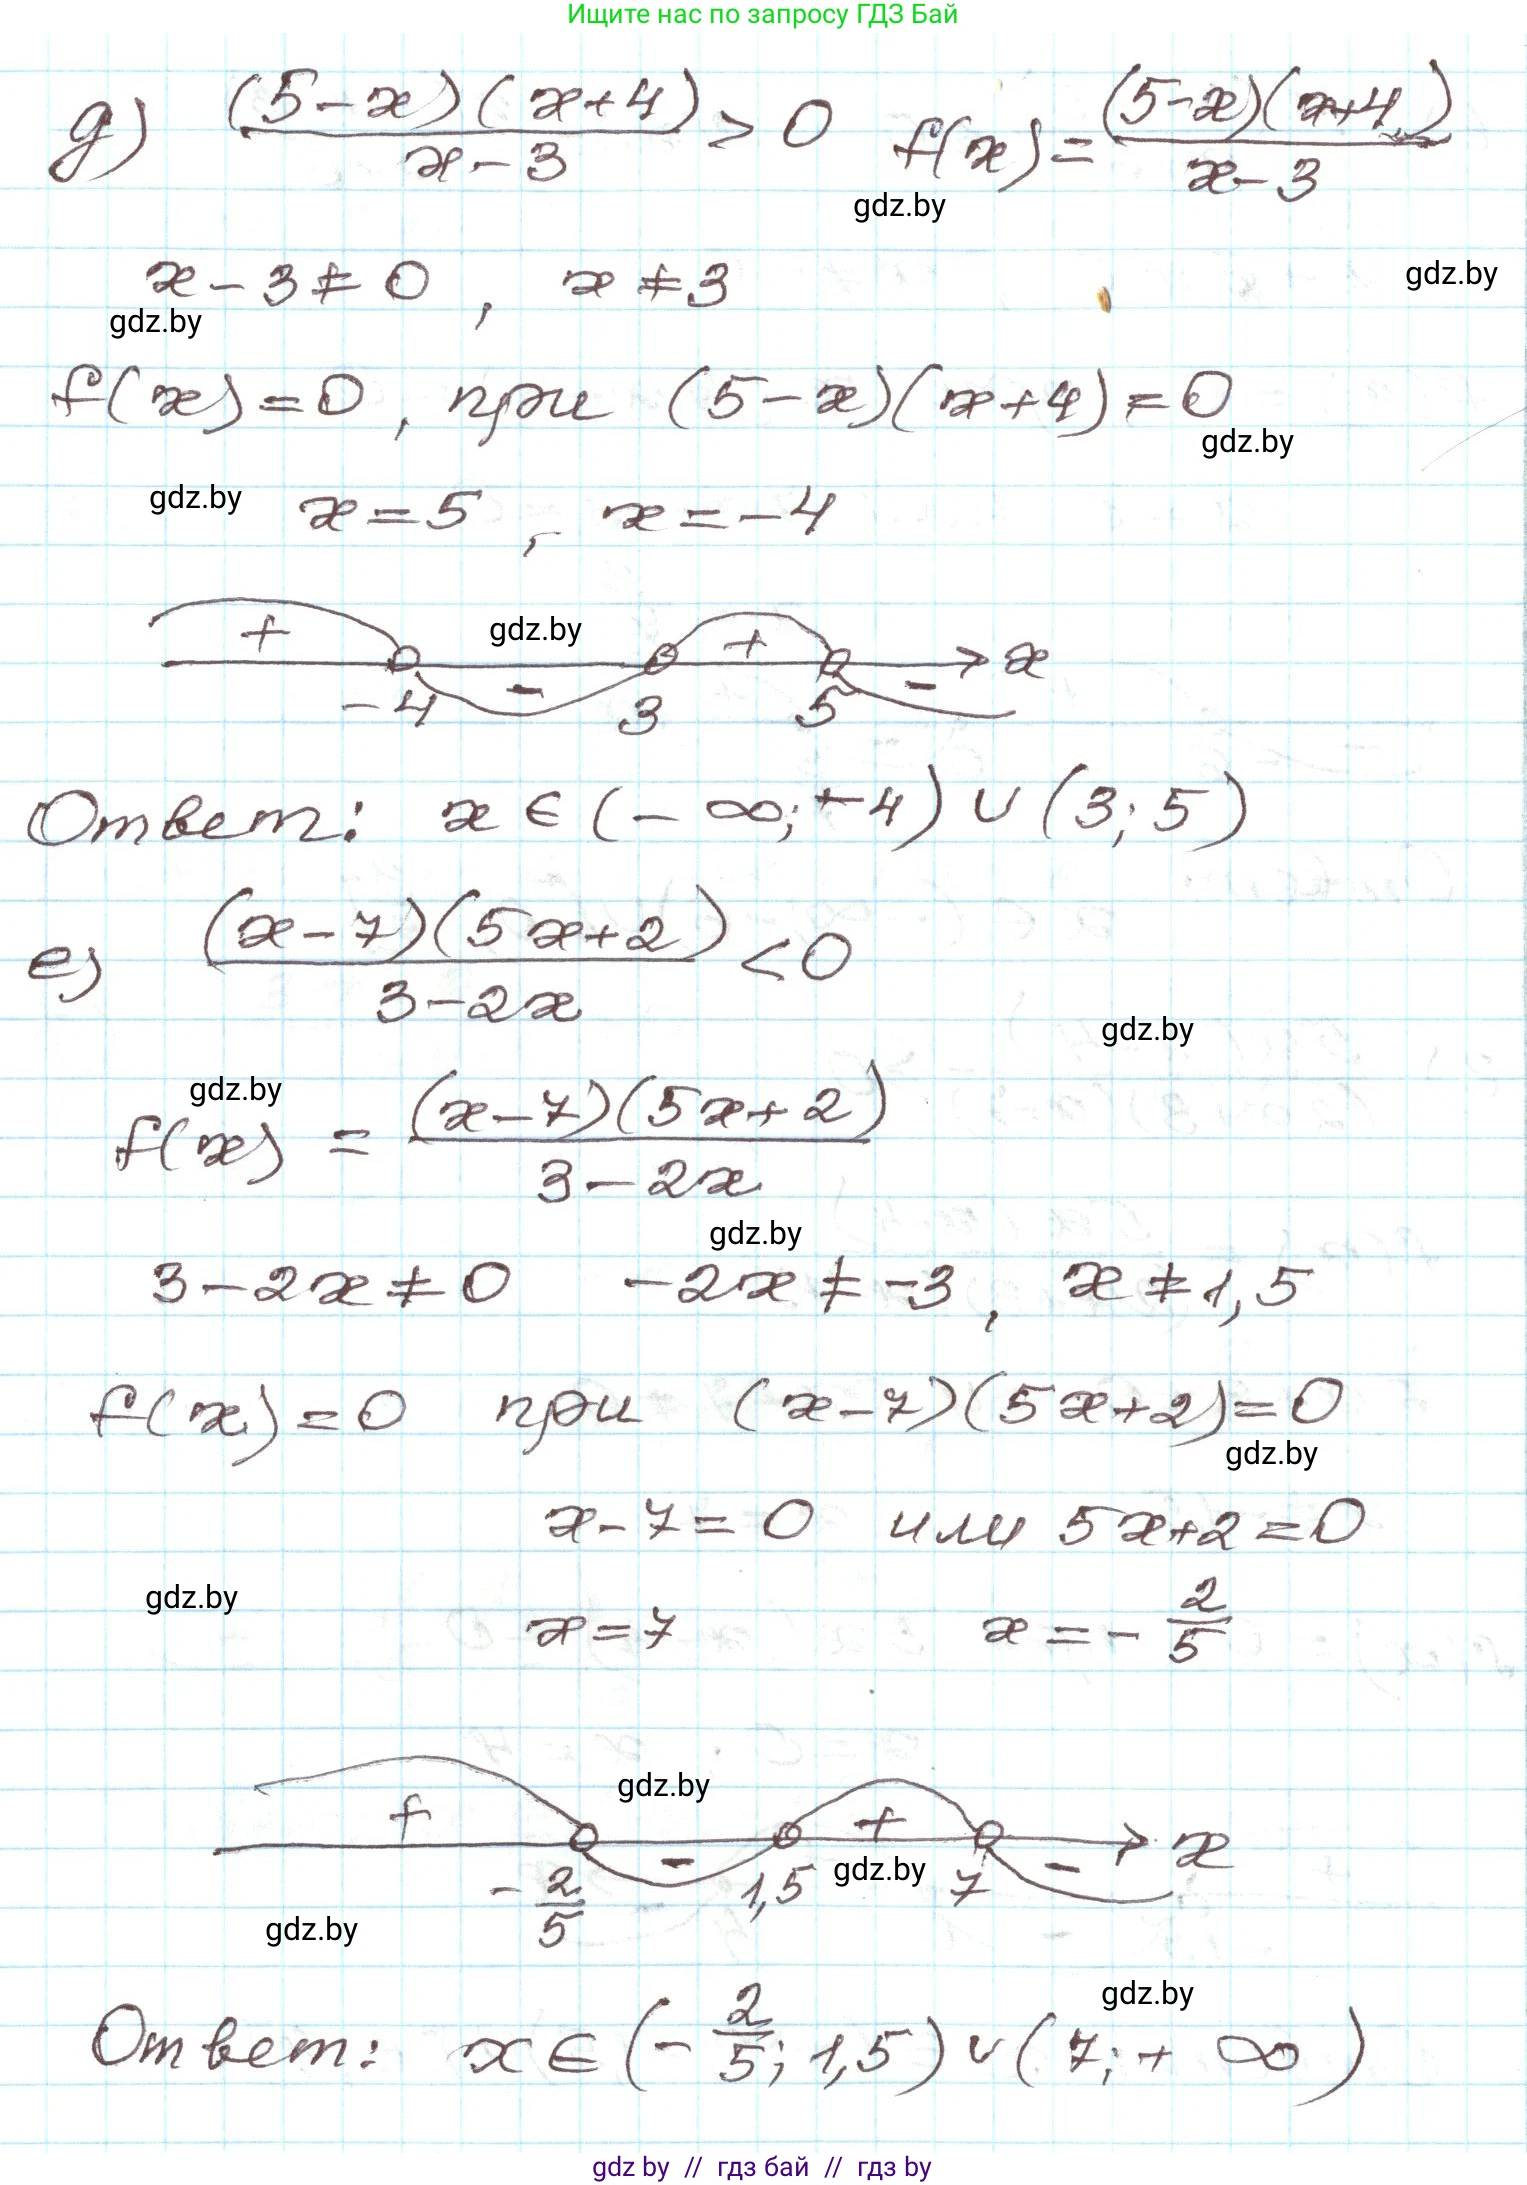 Ищите нас по запросу ГДЗ Бай
д) (5-x)(x+4)/(x-3) > 0 f(x) = (5-x)(x+4)/(x-3)
gdz.by
x-3≠0, x≠3
gdz.by
gdz.by
f(x)=0, при (5-x)(x+4)=0
gdz.by
gdz.by x=5, x=-4
+ gdz.by + x
-4 - 3 5 -
Ответ: x∈(-∞;-4)∪(3;5)
е) (x-7)(5x+2)/(3-2x) <0
gdz.by
gdz.by
f(x) = (x-7)(5x+2)/(3-2x)
gdz.by
3-2x≠0 -2x≠-3, x≠1,5
f(x)=0 при (x-7)(5x+2)=0
gdz.by
x-7=0 или 5x+2=0
gdz.by
x=7 x=-2/5
gdz.by
+ - + - x
-2/5 1,5 gdz.by 7
gdz.by
gdz.by
Ответ: x∈(-2/5;1,5)∪(7;+∞)
gdz by // гдз бай // гдз by